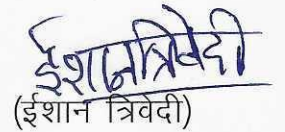 ईशान त्रिवेदी
(ईशान त्रिवेदी)